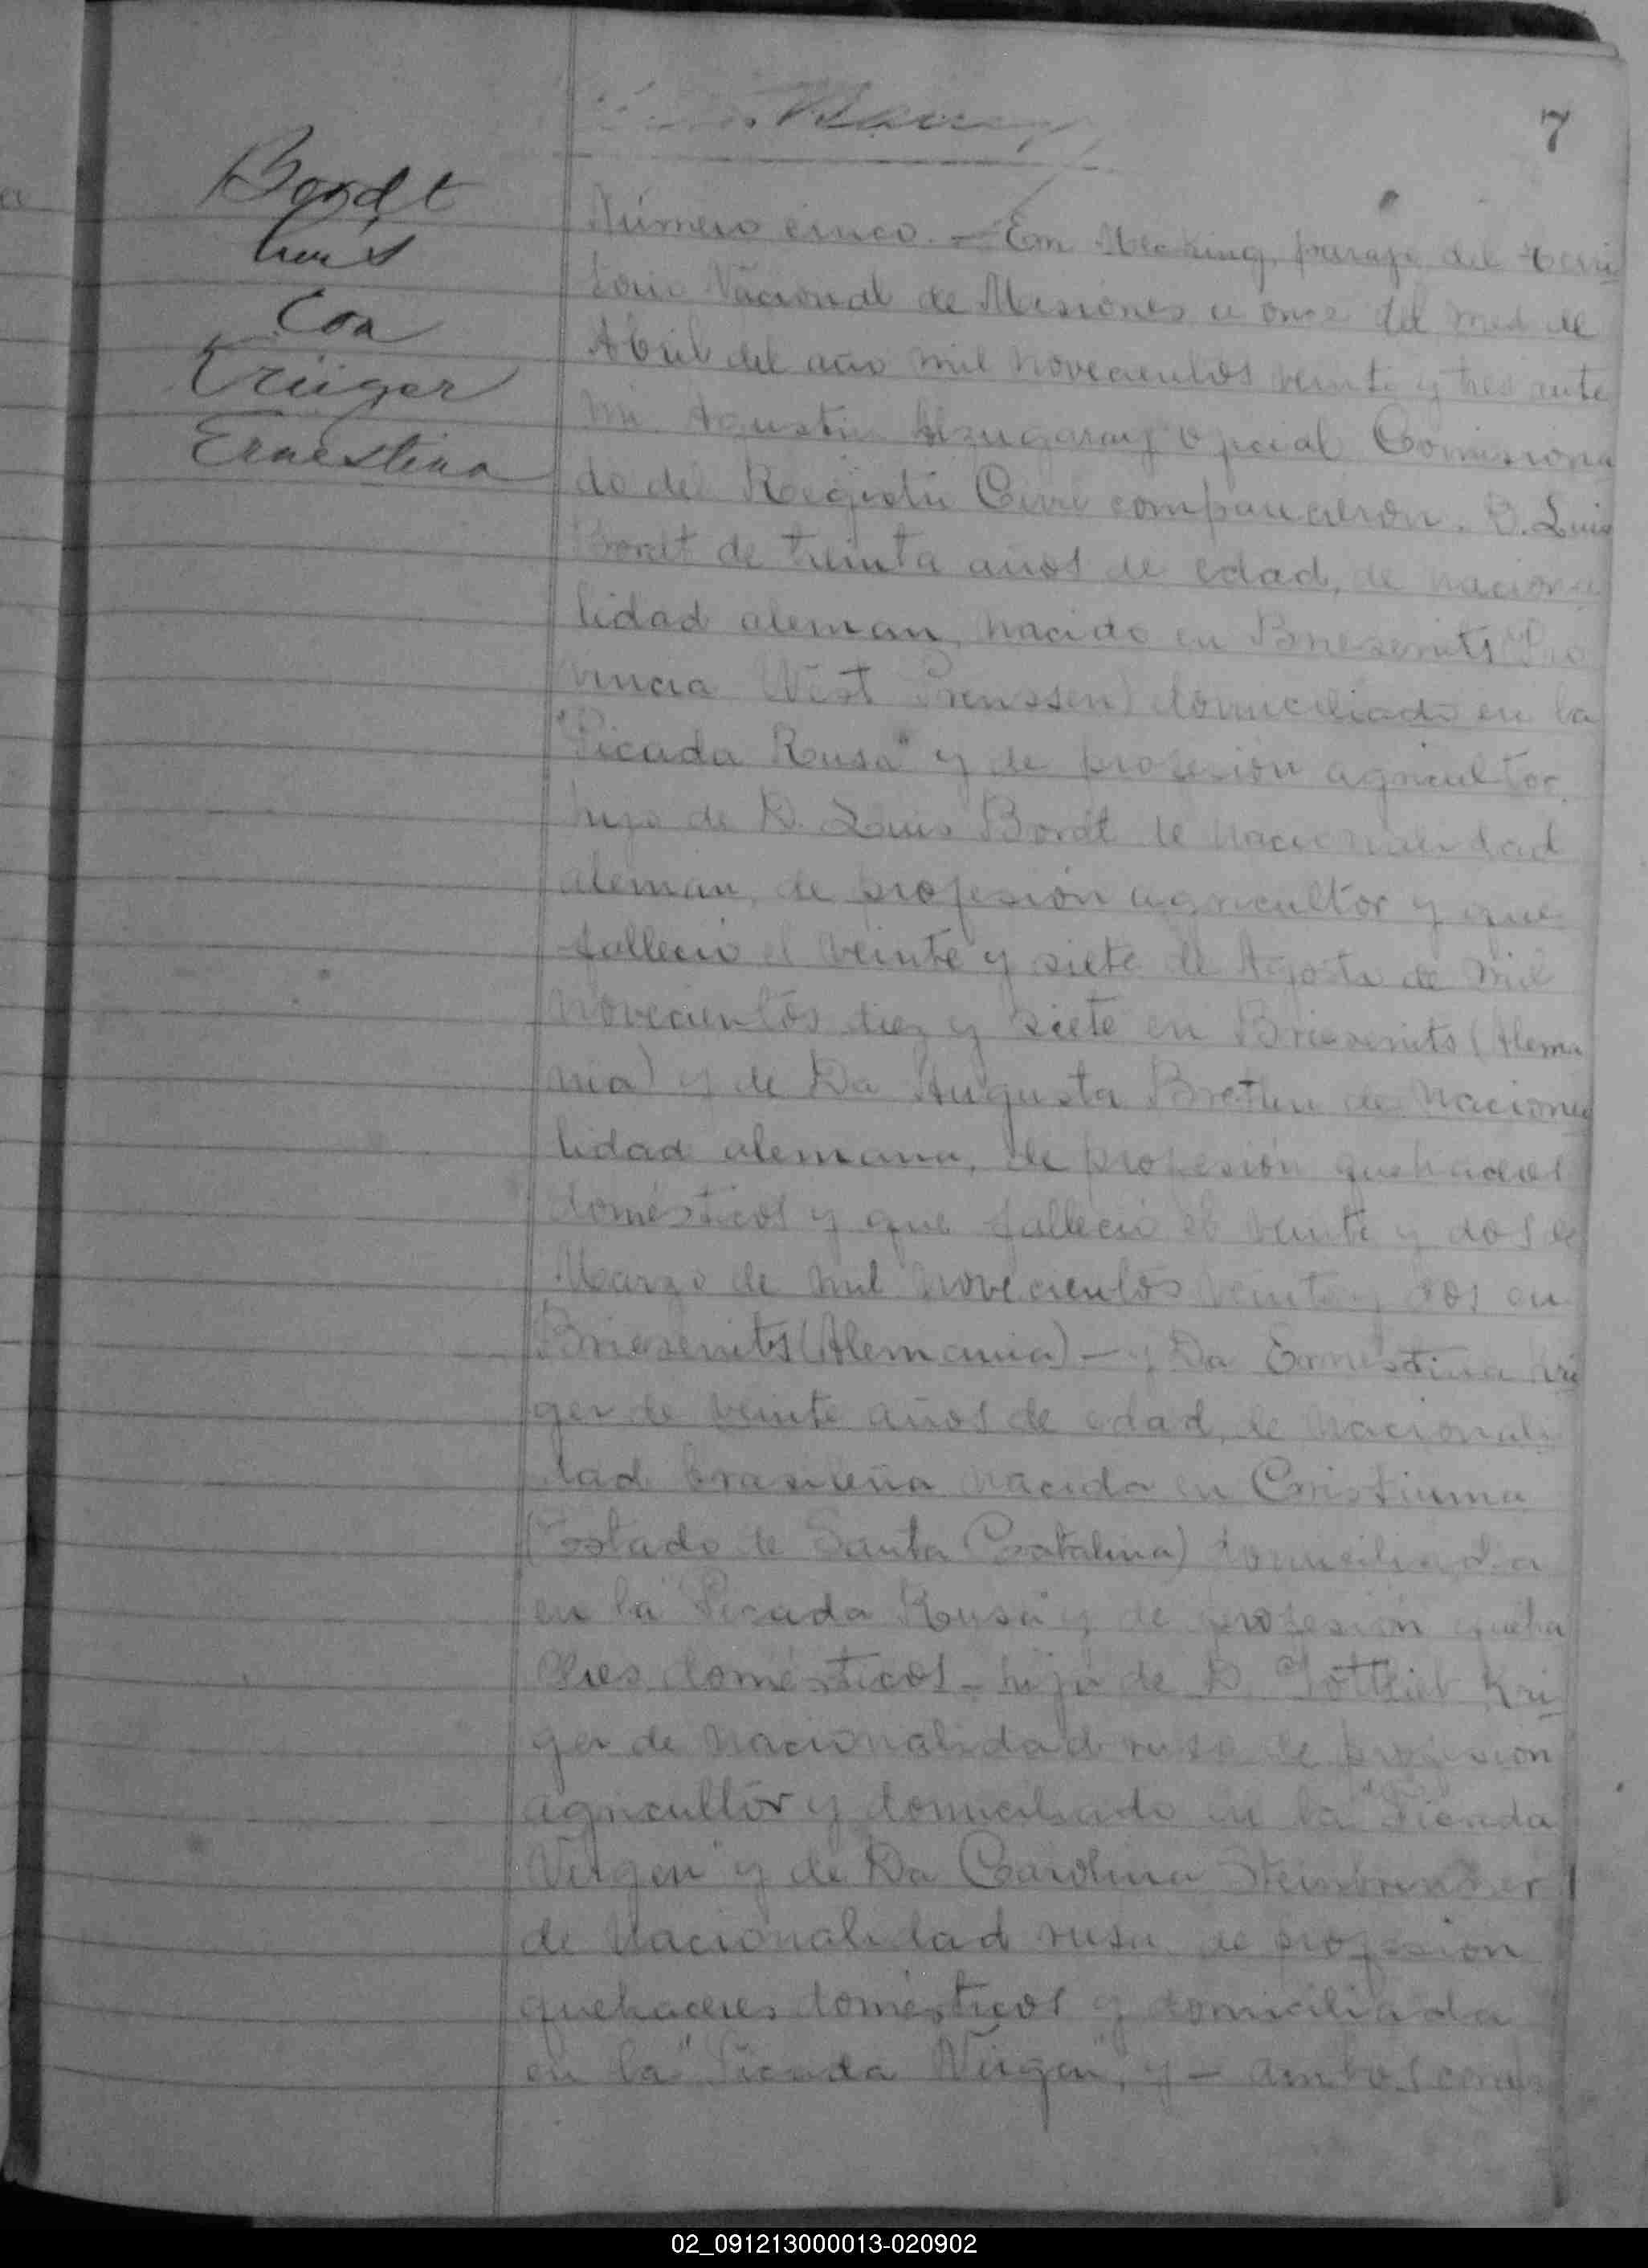 7
Bordt
Luis
Con
Krüger
Ernestina
Número cinco. - En Mecking, paraje del terri
torio Nacional de Misiones a once del mes de
Abril del año mil novecientos veinte y tres ante
mi Agustin Alzugaray Oficial Comisiona
do del Registro Civil comparecieron. D. Luis
Bordt de treinta años de edad, de naciona
lidad aleman, nacido en Briesenits (Pro
vincia West Preussen) domiciliado en la
"Picada Rusa" y de profesión agricultor
hijo de D. Luis Bordt de nacionalidad
aleman, de profesión agricultor y que
falleció el veinte y siete de Agosto de mil
novecientos diez y siete en Briesenits (Alema
nia) y de Da Augusta de naciona
lidad alemana, de profesión quehaceres
domésticos y que falleció el veinte y dos de
Marzo de mil novecientos veinte y dos en
Briesenits (Alemania) - y Da Ernestina Krü
ger de veinte años de edad, de nacionali
dad brasileña nacida en Cristiuma
(Estado de Santa Catalina) domiciliada
en la "Picada Rusa" y de profesión queha
ceres domésticos - hija de D. Gottlieb Krü
ger de nacionalidad ruso de profesión
agricultor y domiciliado en la "Picada
Virgen" y de Da Carolina Steinbrenner
de nacionalidad rusa de profesión
quehaceres domésticos y domiciliada
en la "Picada Virgen", y - ambos
02_091213000013-020902